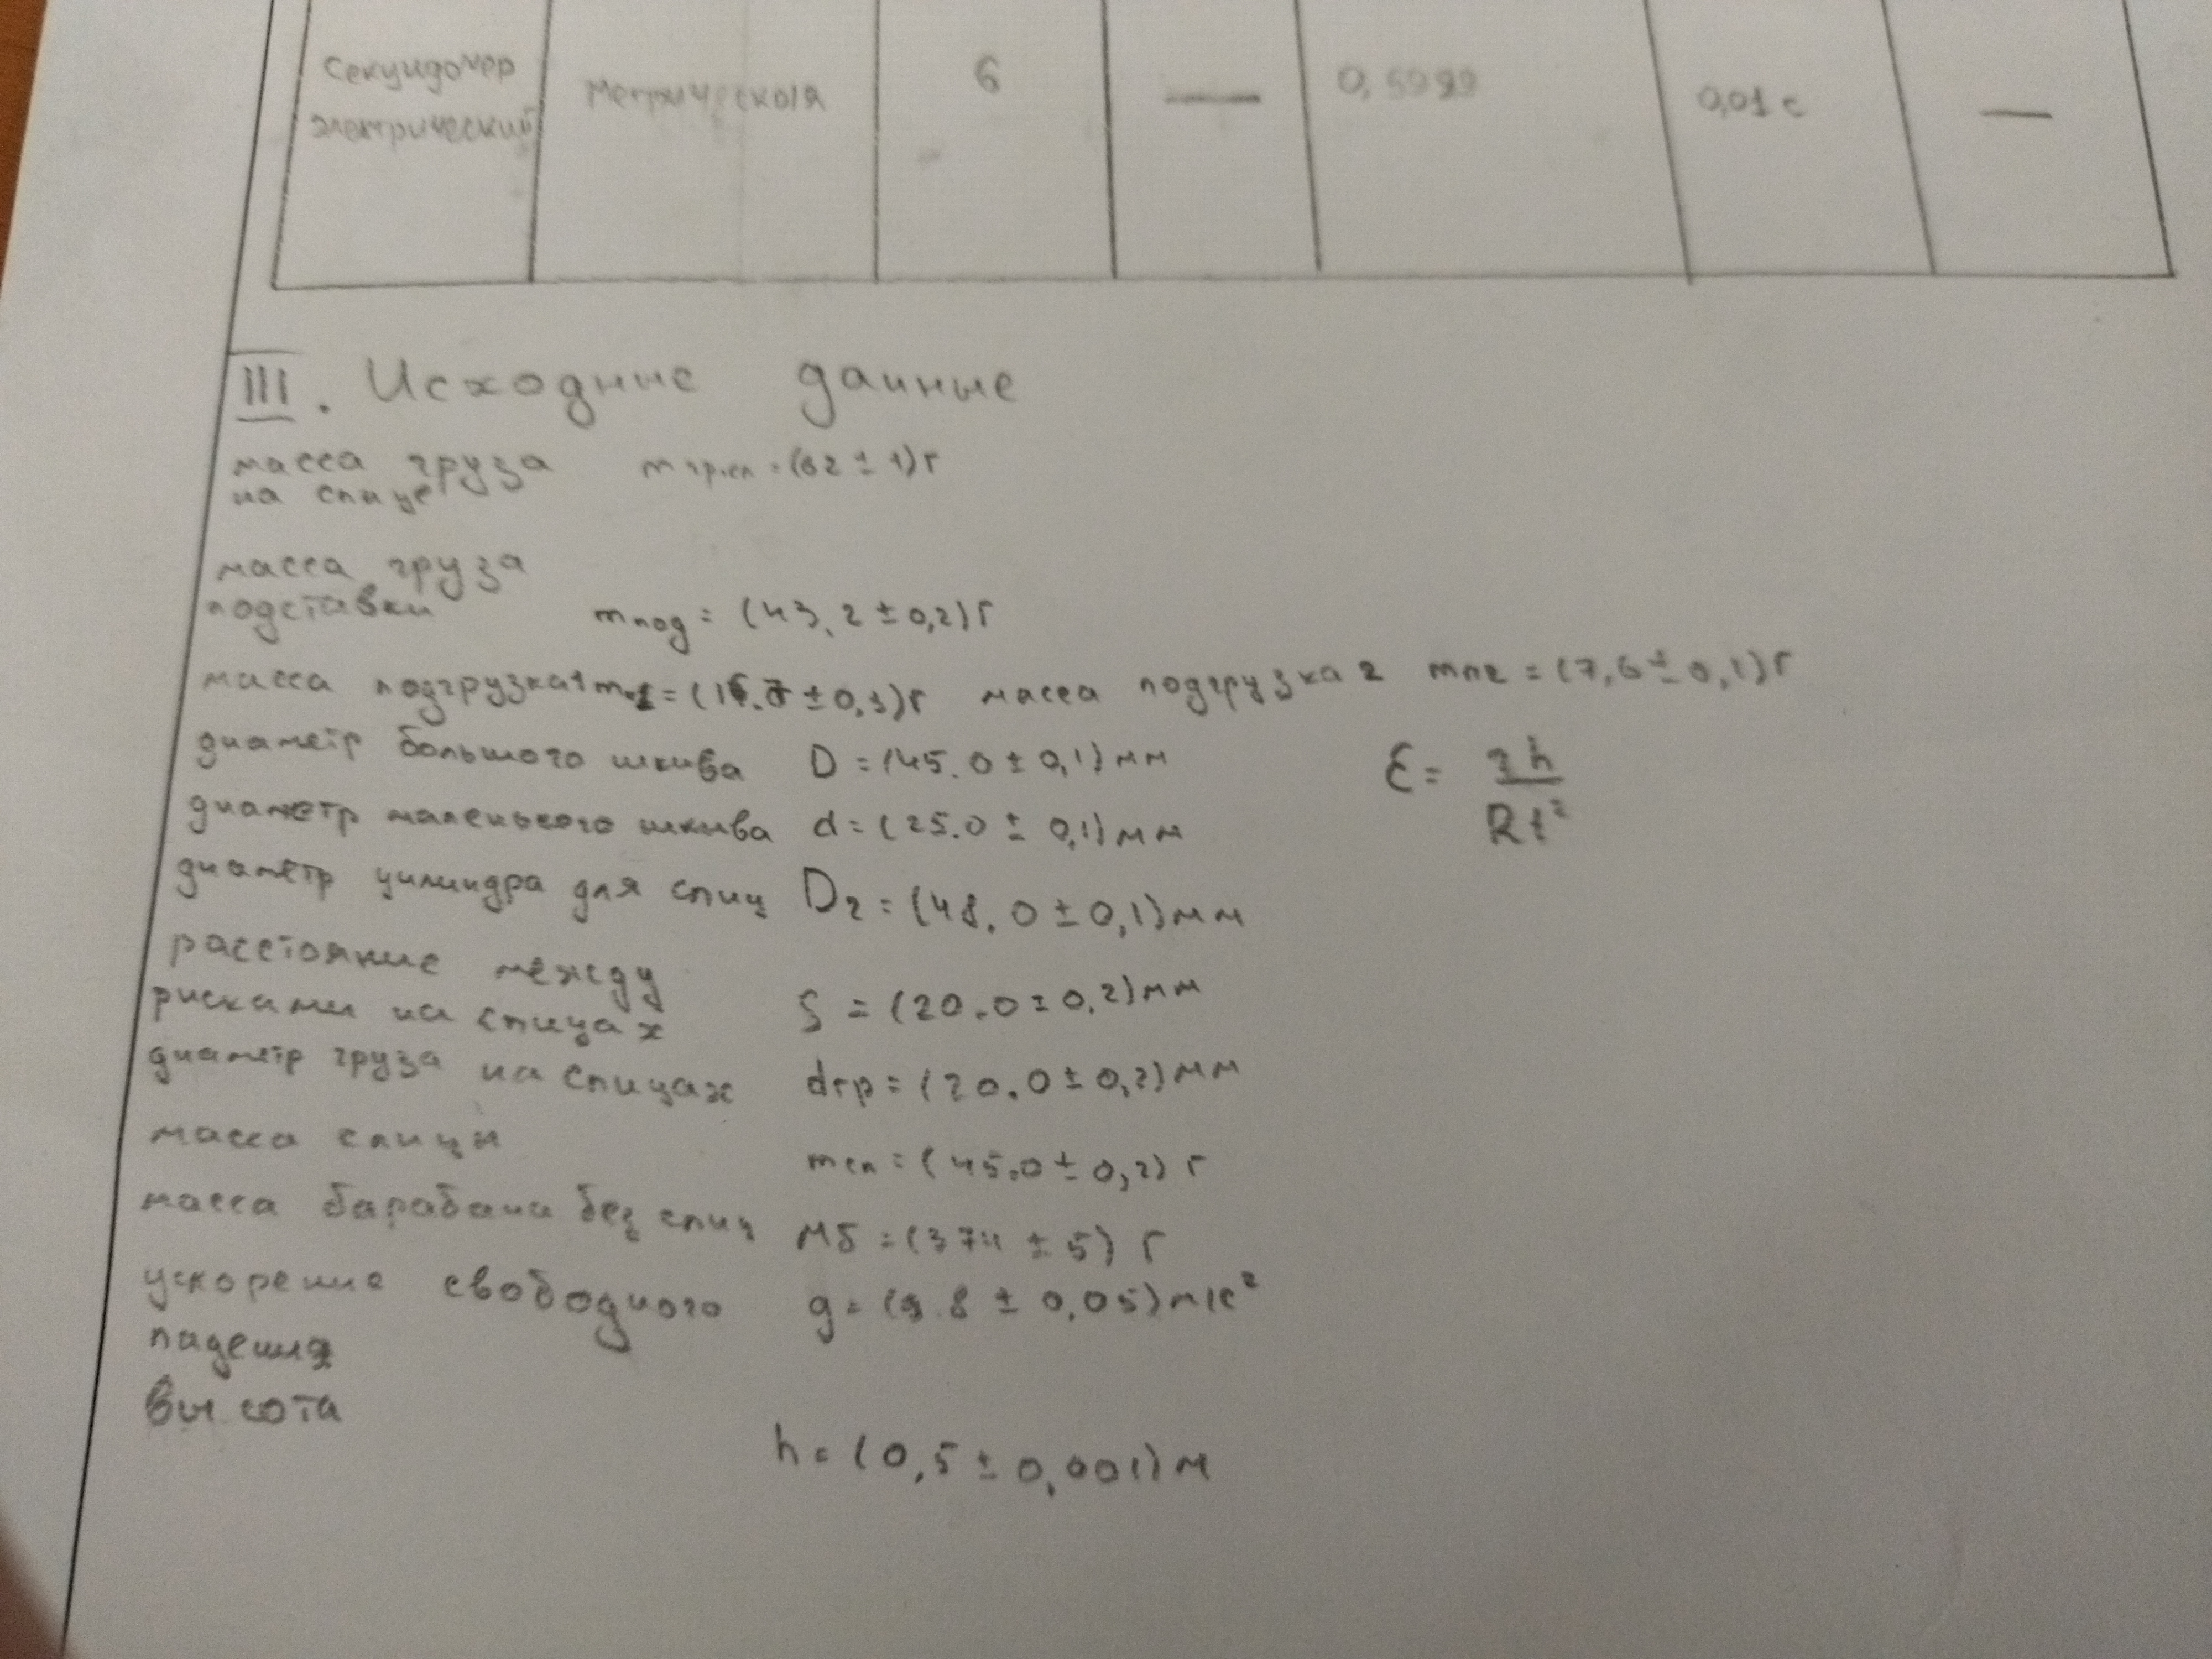 Секундомер метрическая 6 — 0,01 с —
электрический
III. Исходные данные
масса груза m гр.сп = (62 ± 1) г
на спице
масса груза
подставки mпод = (43,2 ± 0,2) г
масса подгрузка 1 масса подгрузка 2 mп2 = (7,6 ± 0,1) г
диаметр большого шкива D = (45.0 ± 0,1) мм
диаметр маленького шкива d = (25.0 ± 0,1) мм
ε = 2h
Rt²
диаметр цилиндра для спиц D2 = (48.0 ± 0,1) мм
расстояние между
рисками на спицах S = (20.0 ± 0,2) мм
диаметр груза на спицах dгр = (20.0 ± 0,2) мм
масса спицы mсп = (45.0 ± 0,2) г
масса барабана без спиц Mб = (374 ± 5) г
ускорение свободного g = (9.8 ± 0,05) м/с²
падения
высота
h = (0,5 ± 0,001) м